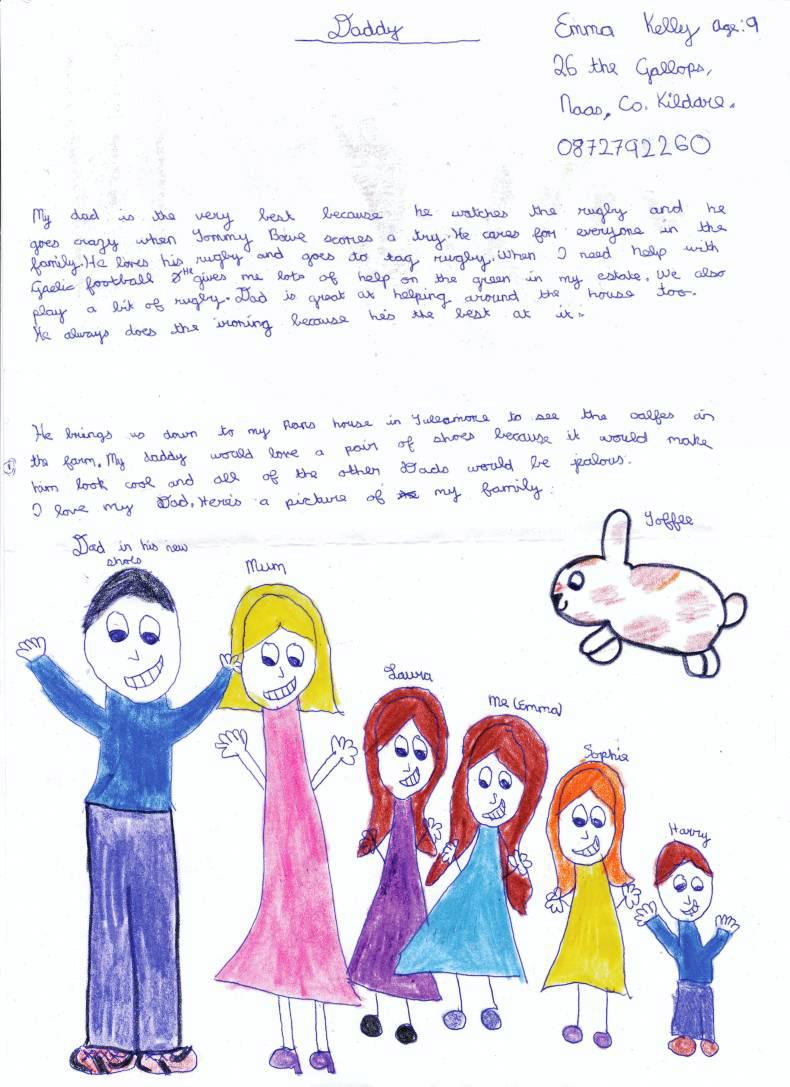 Daddy
Emma Kelly age:9
26 the Gallops,
Naas, Co. Kildare.
0872792260
My dad is the very best because he watches the rugby and he
goes crazy when Tommy Bowe scores a try. He cares for everyone in the
family. He loves his rugby and goes to tag rugby. When I need help with
Gaelic football he gives me lots of help on the green in my estate. We also
play a bit of rugby. Dad is great at helping around the house too.
He always does the ironing because he's the best at it.
He brings us down to my Nans house in Tullamore to see the calfes in
the farm. My daddy would love a pair of shoes because it would make
him look cool and all of the other Dads would be jealous.
I love my Dad. Here's a picture of my family:
Toffee
Dad in his new
shoes
Mum
Laura
Me (Emma)
Sophie
Harry